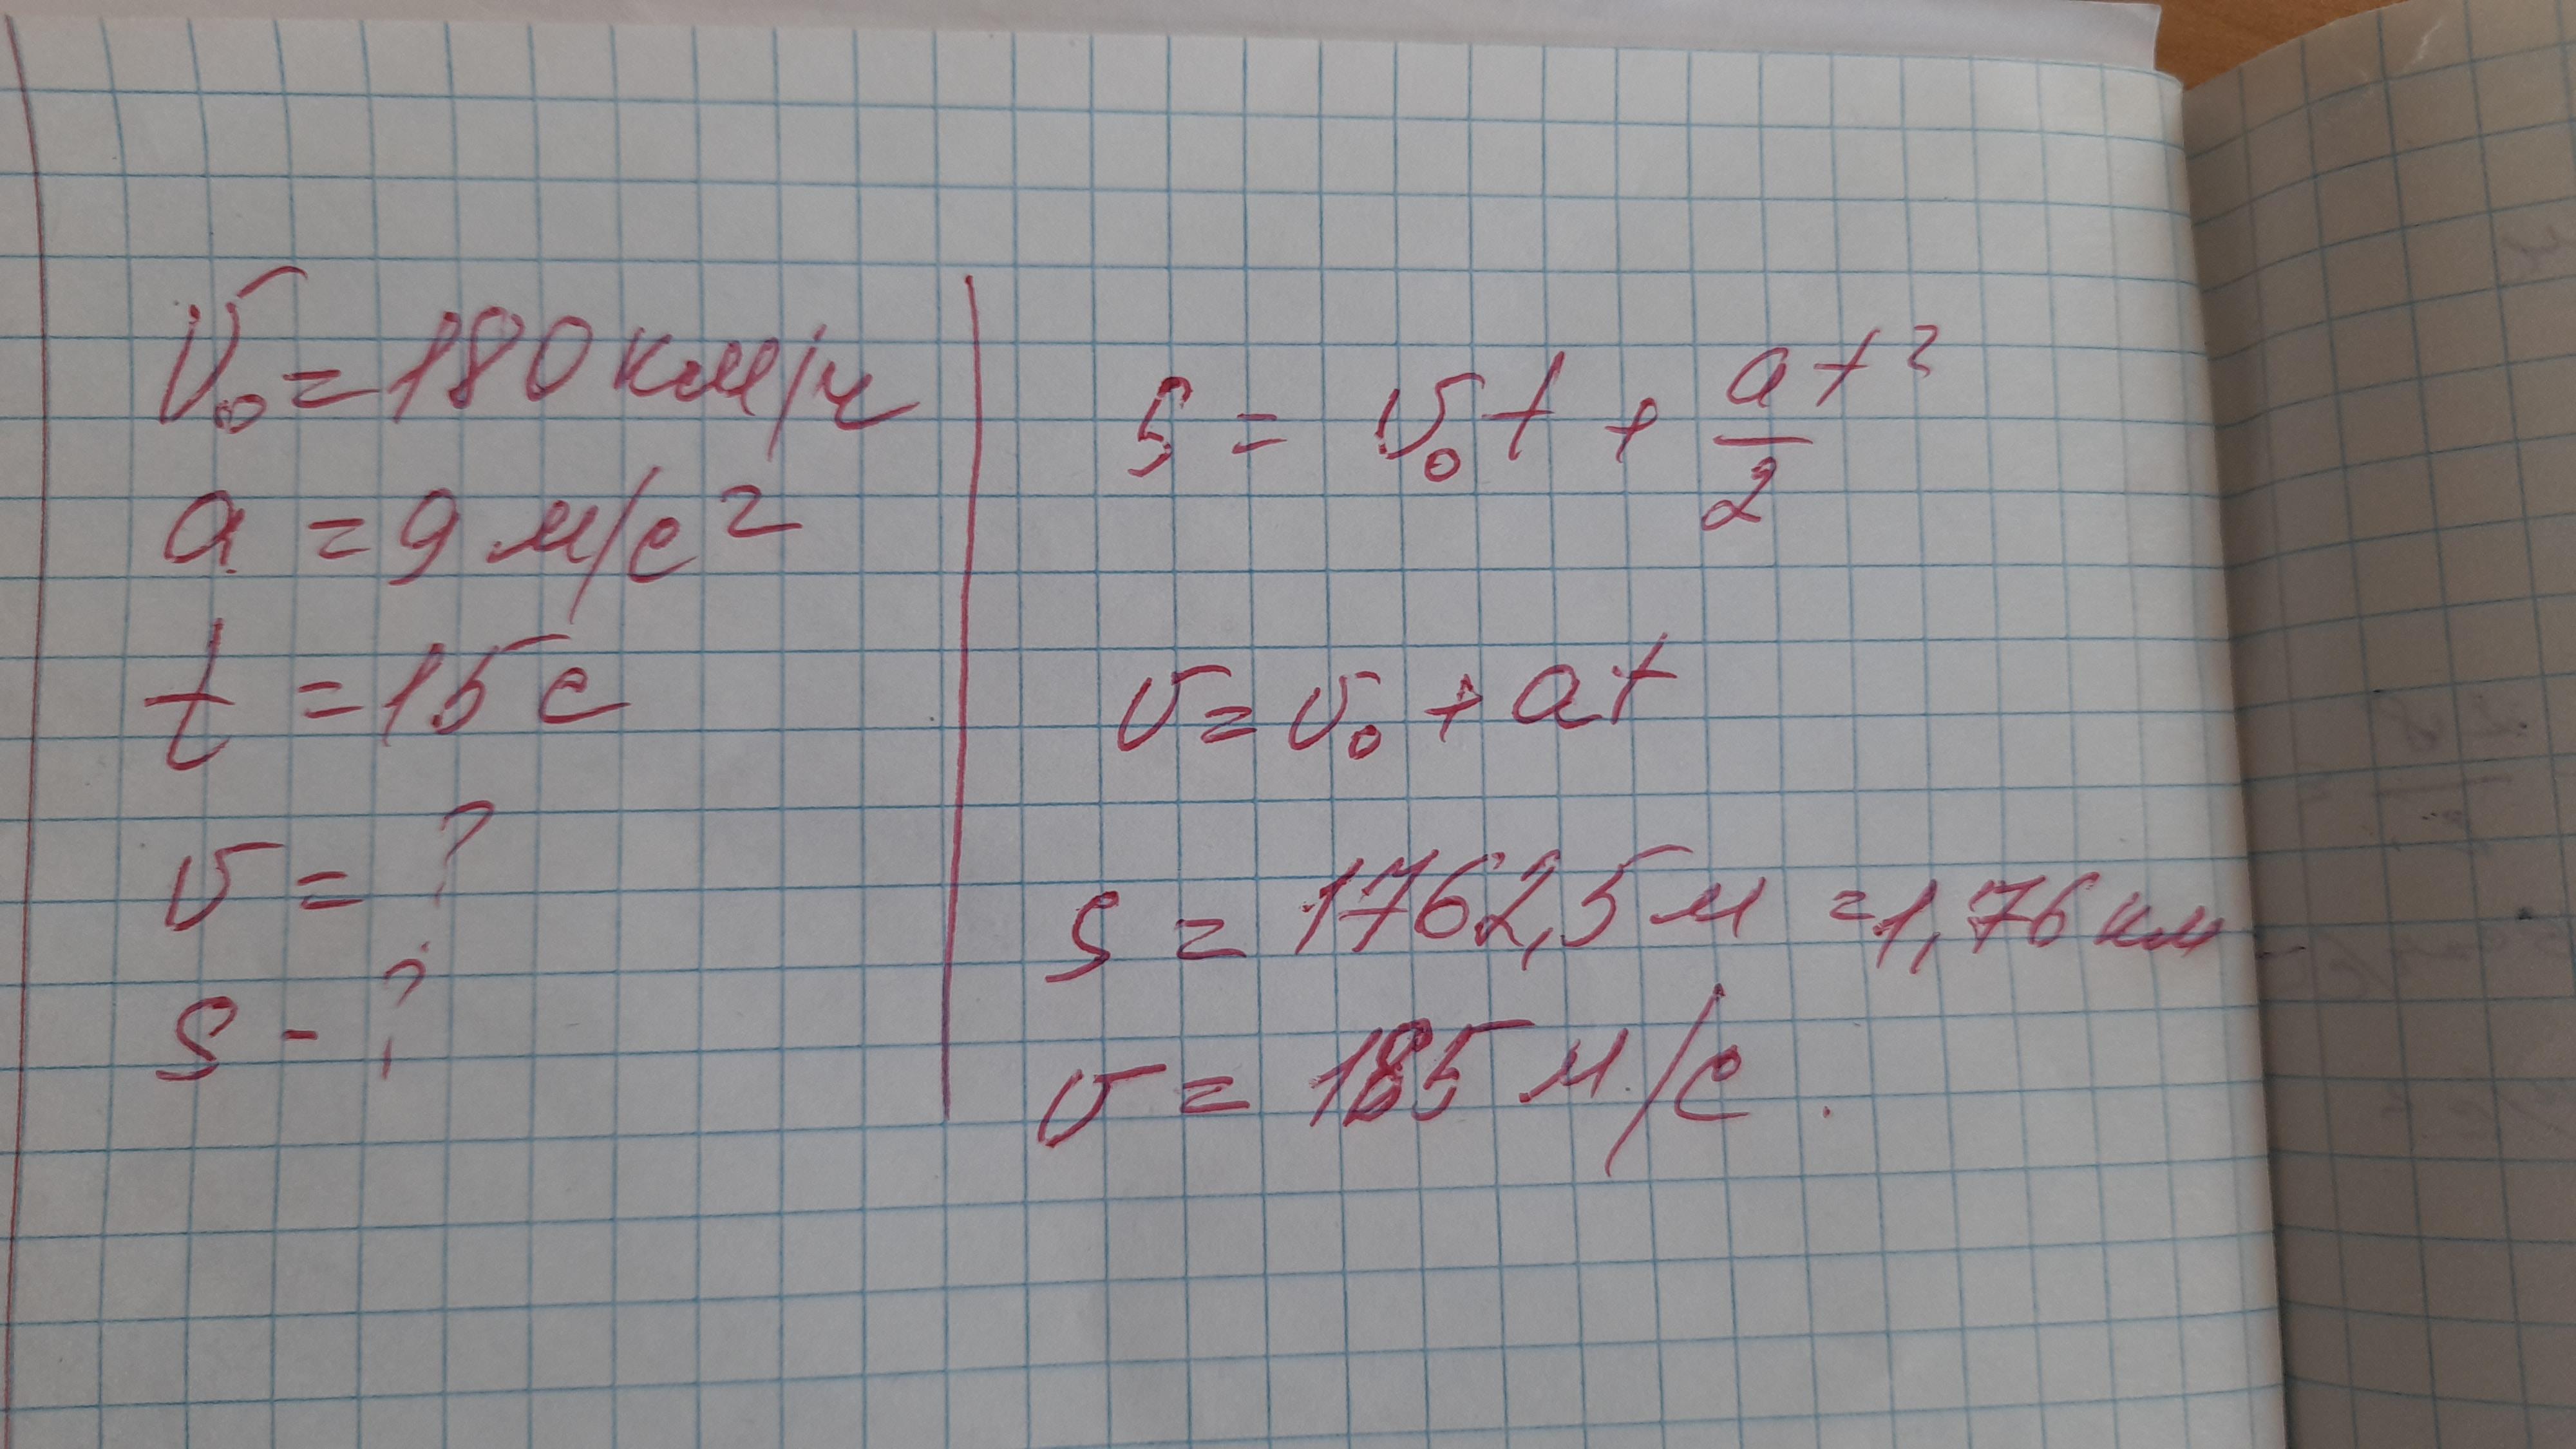 v₀ = 180 км/ч
a = 9 м/с²
t = 15 с
v = ?
s - ?
s = v₀t + at²/2
v = v₀ + at
s = 1762,5 м = 1,76 км
v = 185 м/с.